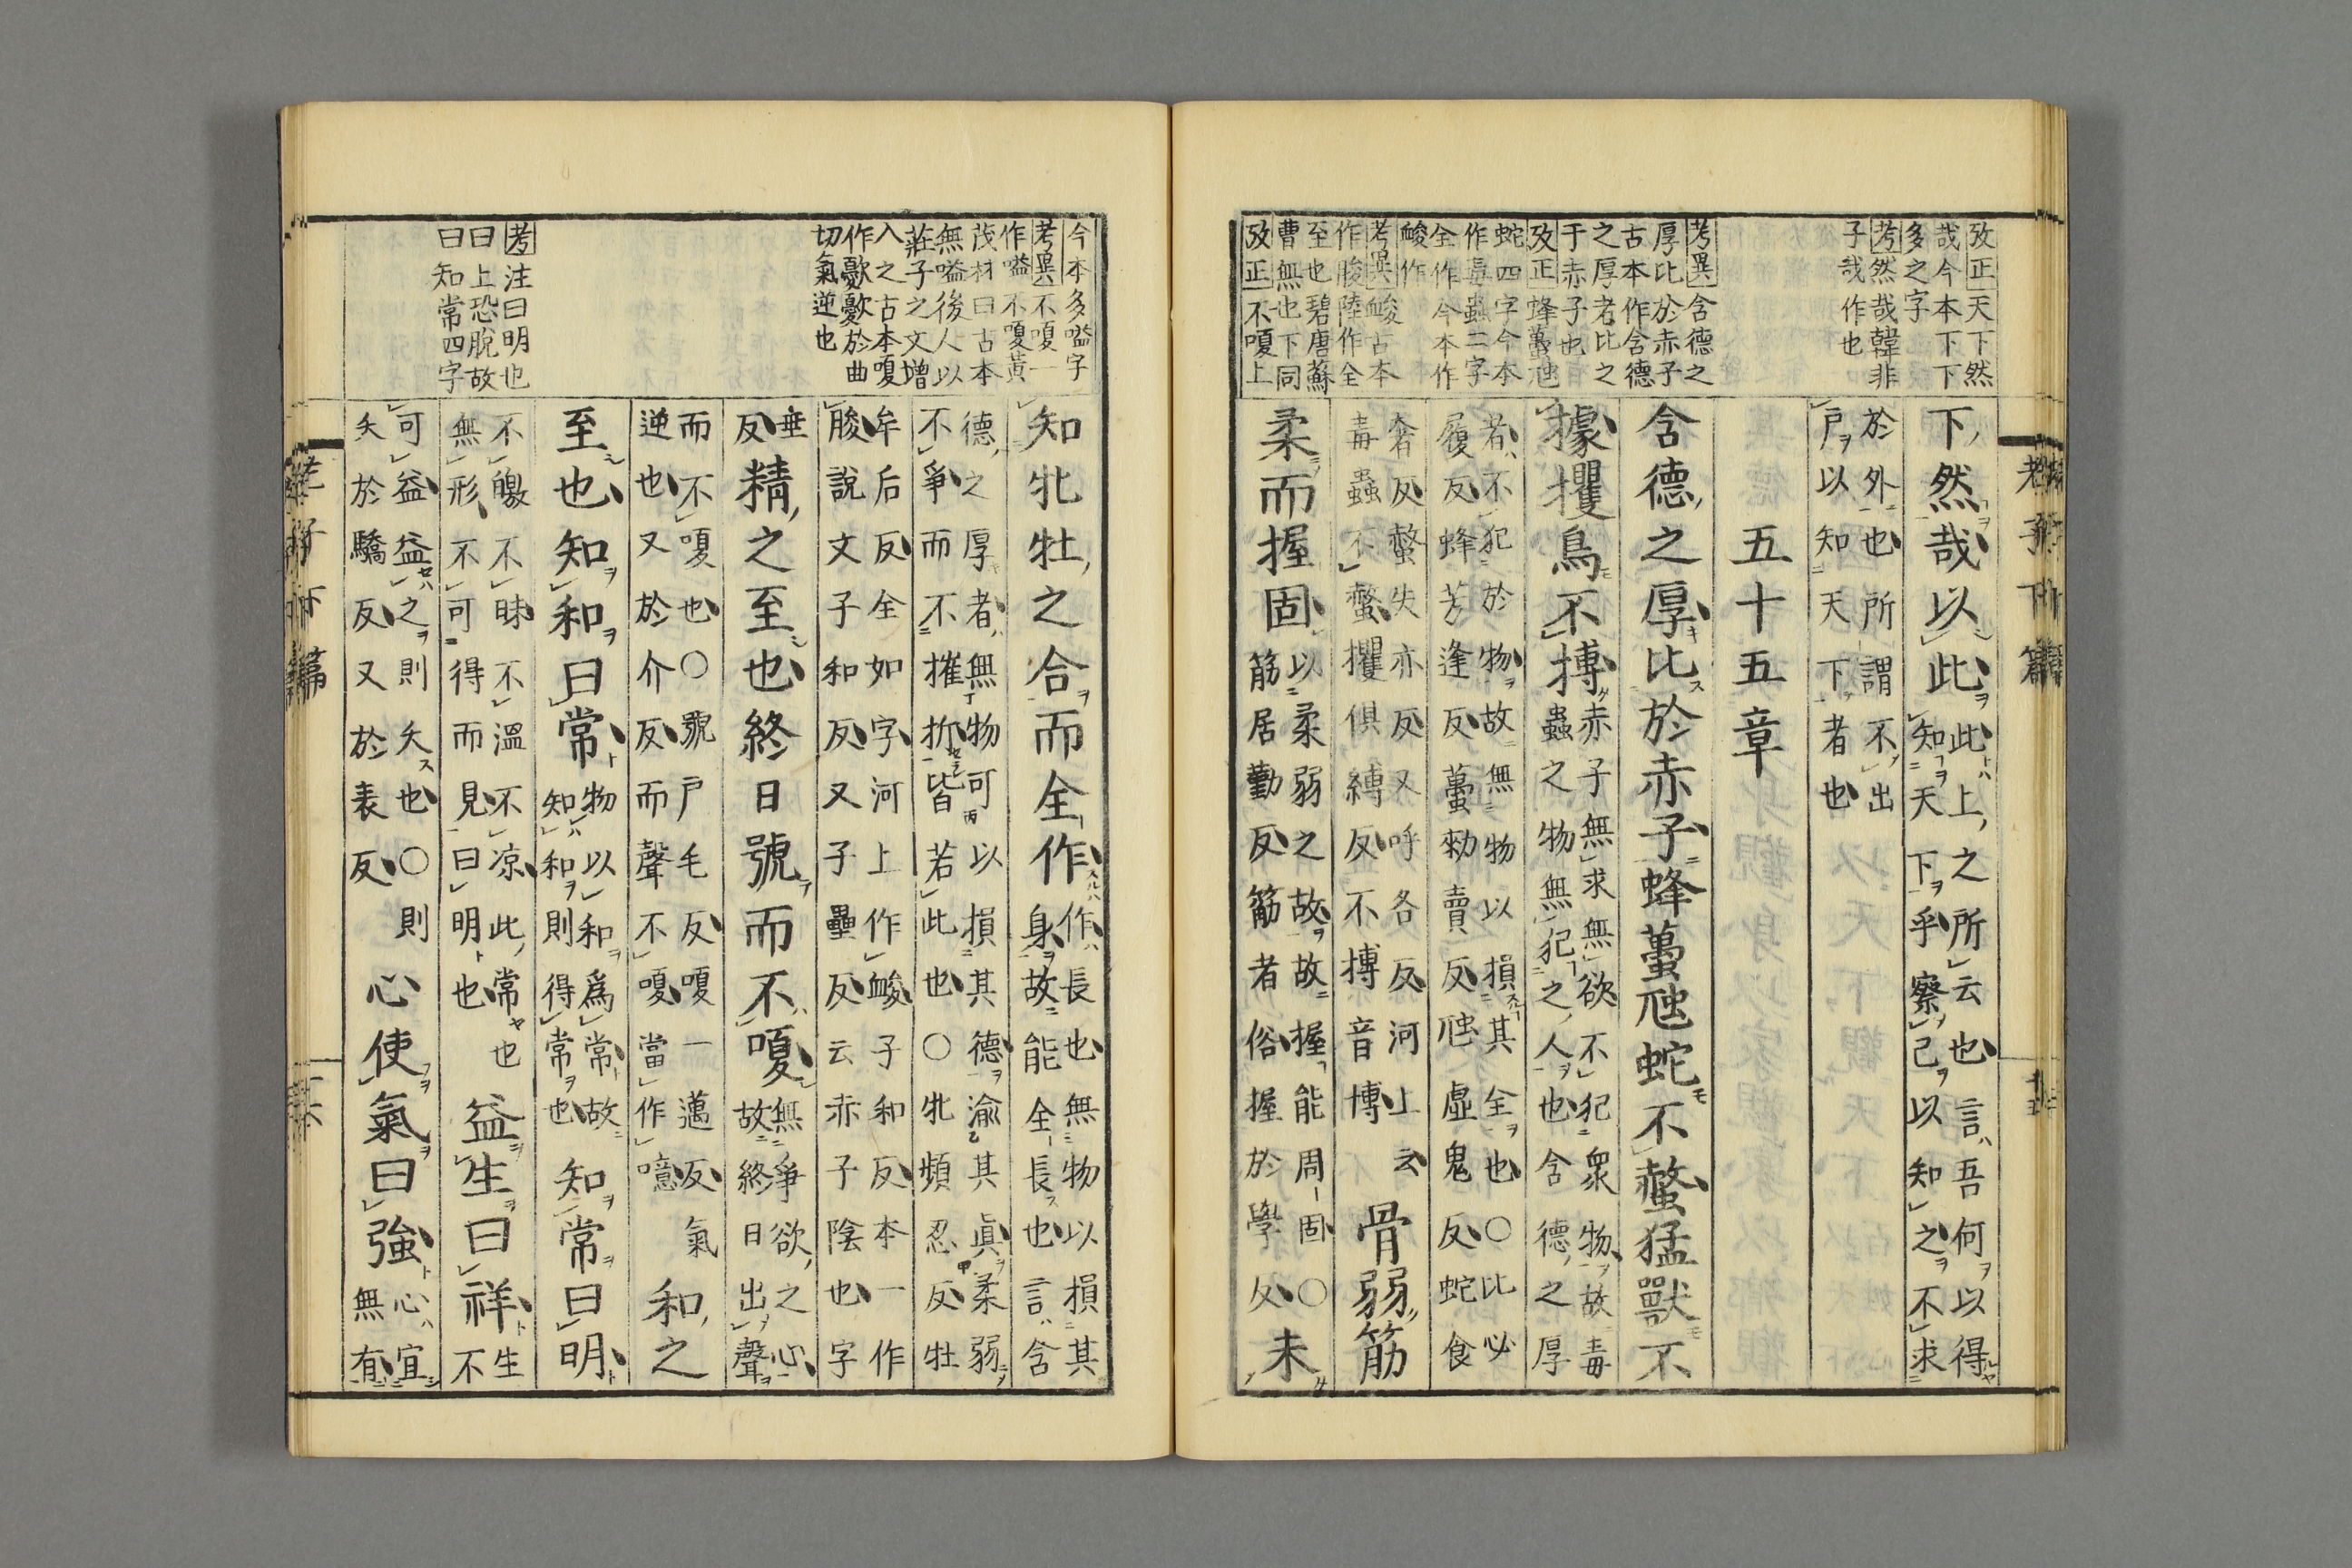 攷正天下然
哉今本下下
多之字
考然哉韓非
子哉作也
考異含德之
厚比於赤子
古本作含德
之厚者比之
于赤子也
攷正蜂蠆虺
蛇四字今本
作毒蟲二字
全作今本作
䘒作
考異䘒古本
作朘陸作全
至也碧唐蘇
曹無也下同
攷正不嗄上
下然哉以此
此上之所云也言吾何以得
知天下乎察己以知之不求
於外也所謂不出
戶以知天下者也
五十五章
含德之厚比於赤子蜂蠆虺蛇不螫猛獸不
據攫鳥不搏
赤子無求無欲不犯衆物故毒
蟲之物無犯之人也含德之厚
者不犯於物故無物以損其全也〇比必
履反蜂芳逢反蠆勑賣反虺虛鬼反蛇食
奢反螫失亦反又呼各反河上云
毒蟲不螫攫俱縛反不搏音博
骨弱筋
柔而握固
以柔弱之故故握能周固〇
筋居勤反筯者俗握於學反
未
今本多嗌字
考異不嗄一
作嗌不嗄黃
茂材曰古本
無嗌後人以
莊子之文增
入之古本嗄
作於曲
切氣逆也
考注曰明也
曰上恐脫故
曰知常四字
知牝牡之合而全作
作長也無物以損其
身故能全長也言含
德之厚者無物可以損其德渝其眞柔弱
不爭而不摧折皆若此也〇牝頻忍反牡
牟后反全如字河上作䘒子和反本一作
朘說文子和反又子壘反云赤子陰也字
垂
反
精之至也終日號而不嗄
無爭欲之心
故終日出聲
而不嗄也〇號戶毛反嗄一邁反氣
逆也又於介反而聲不嗄當作噫
和之
至也知和曰常
物以和爲常故
知和則得常也
知常曰明
不皦不昧不溫不凉此常也
無形不可得而見曰明也
益生曰祥
生
不
可益益之則夭也〇則
夭於驕反又於表反
心使氣曰強
心宜
無有
老子下篇